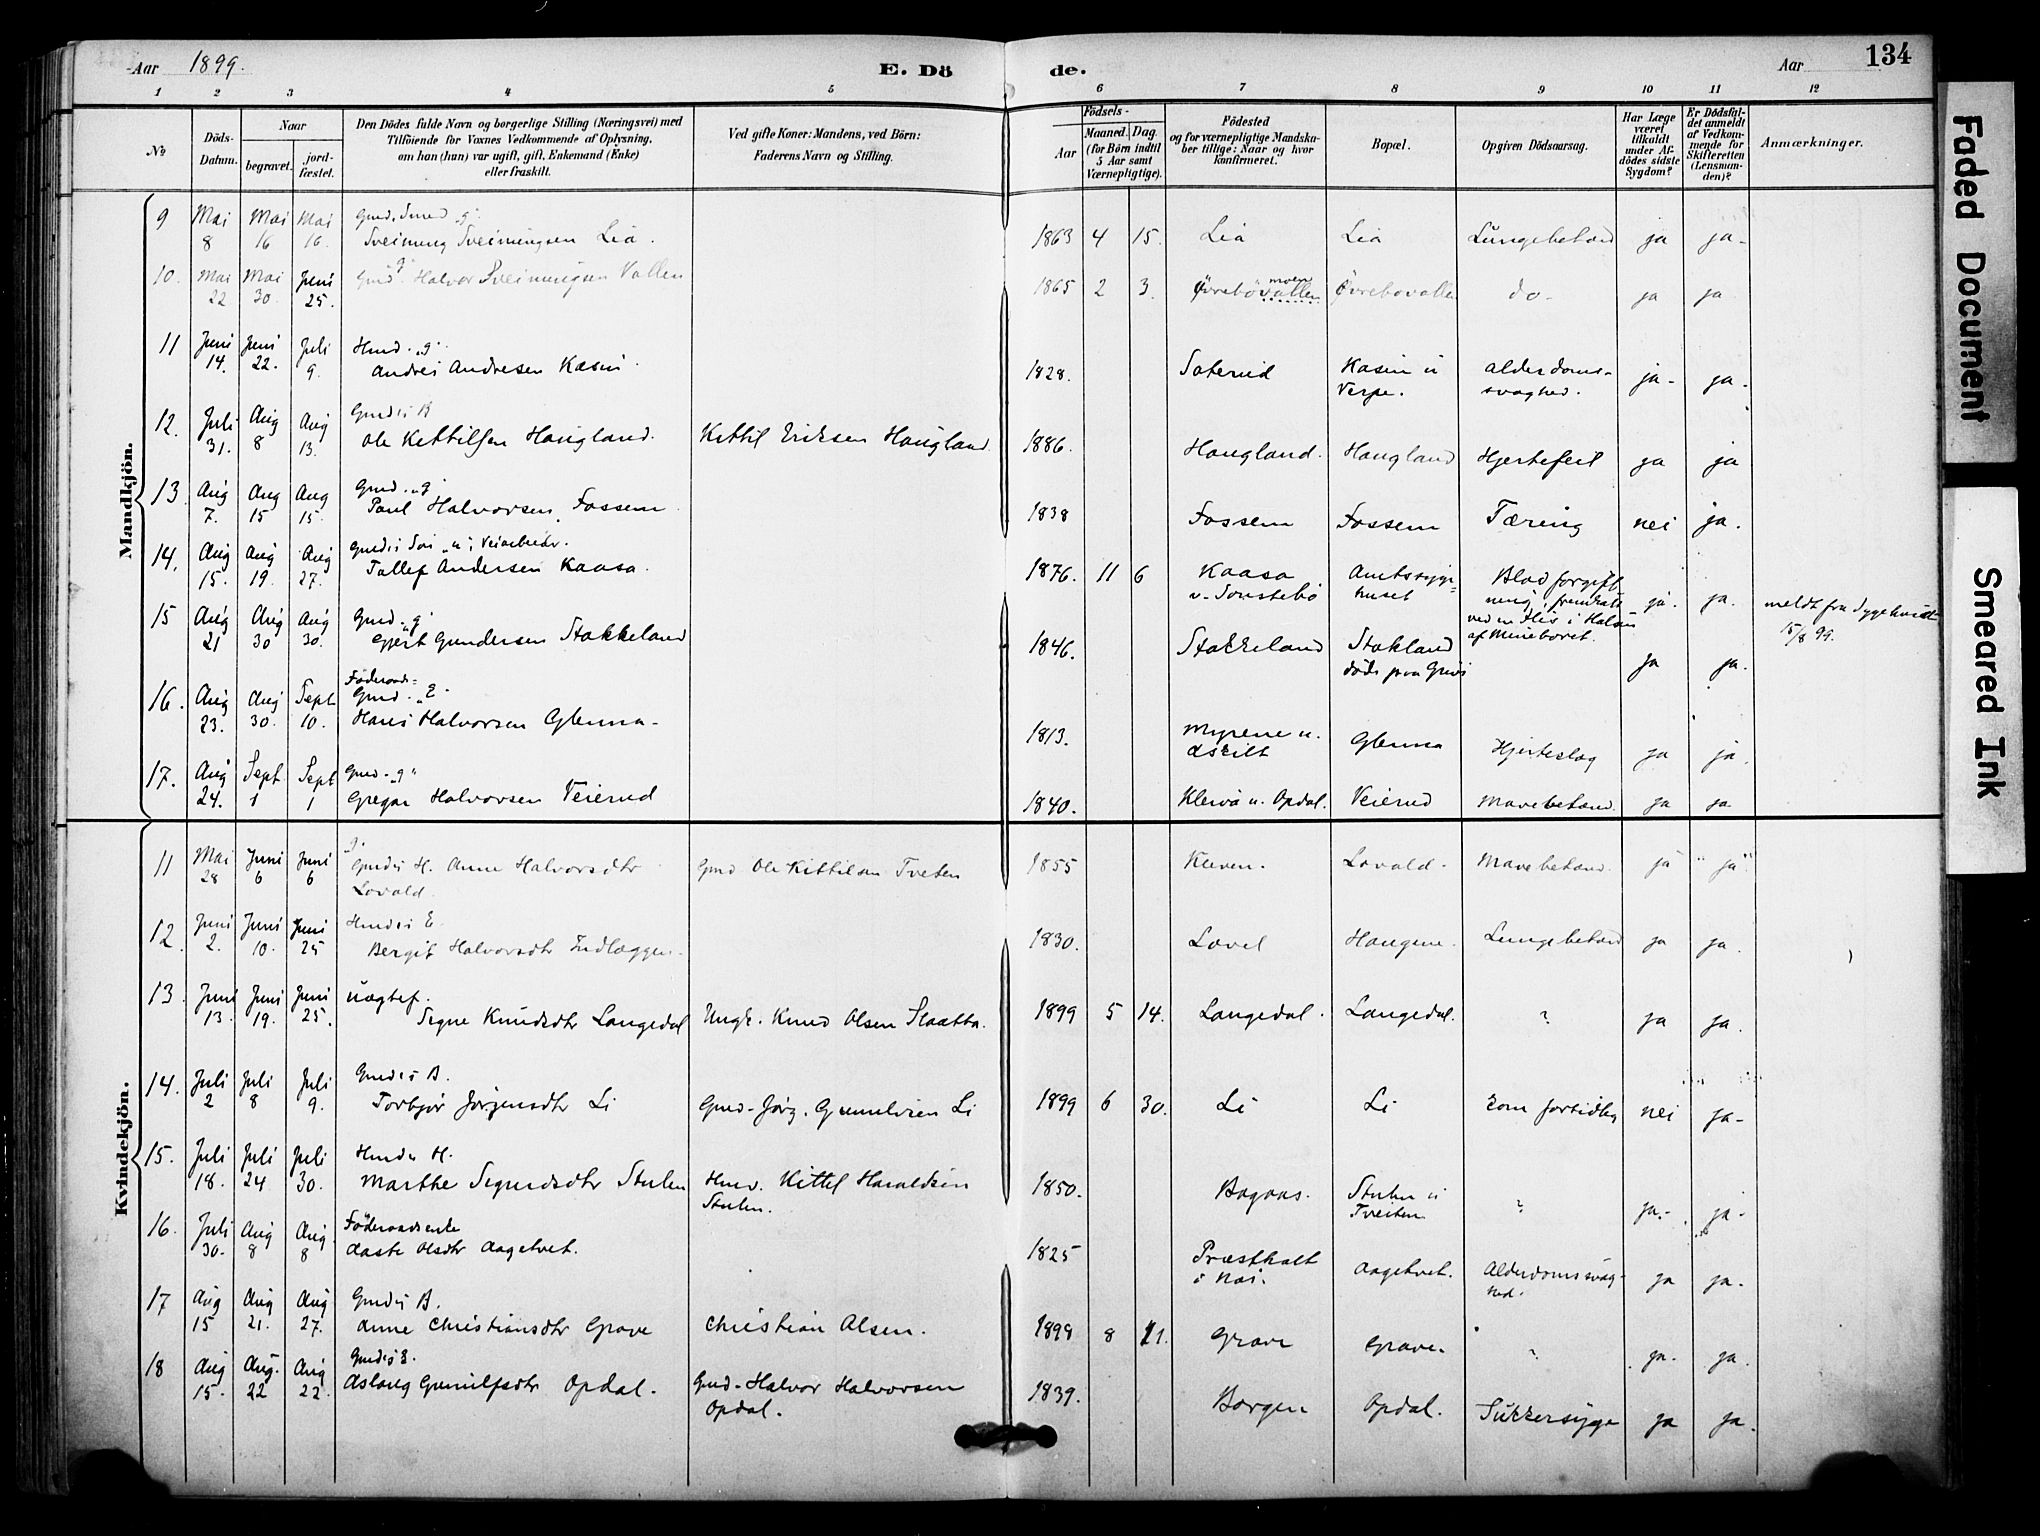 Aar 1899.
E. Dö
de.
Aar
134
1 2 3 4 5 6 7 8 9 10 11 12
№
Döds-Datum.
Naar
begravet.
jord-fæstet.
Den Dödes fulde Navn og borgerlige Stilling (Næringsvei) med
Tilföiende for Voxnes Vedkommende af Oplysning,
om han (hun) var ugift, gift, Enkemand (Enke)
eller fraskilt.
Ved gifte Koner: Mandens, ved Börn:
Faderens Navn og Stilling.
Födsels-
Aar
Maaned. Dag.
(for Börn indtil
5 Aar samt
Værnepligtige).
Födested
og for værnepligtige Mandska-
ber tillige: Naar og hvor
konfirmeret.
Bopæl.
Opgiven Dödsaarsag.
Har Læge
været
tilkaldt
under Af-
dödes sidste
Sygdom?
Er Dödsfal-
det anmeldt
af Vedkom-
mende for
Skifteretten
(Lensman-
den)?
Anmærkninger.
Mandkjön.
9 Mai 8 Mai 16 Mai 16. Gmd. Smed "g". Sveinung Sveinungsen Lia. 1863 4 15. Lia Lia Lungebetænd ja ja-
10. Mai 22 Mai 30. Juni 25. Gmd "g" Halvor Sveinungsen Vallen 1865 2 3. Övrebövallen moen Övrebövallen do- ja ja
11 Juni 14. Juni 22. Juli 9. Hmd. "g". Andres Andresen Kasin. 1828. Saterud Kasin u Verpe. alderdoms-svaghed. ja- ja.
12. Juli 31. Aug 8 Aug 13. Gmdis B Ole Kettilsen Haugland. Kittil Eriksen Haugland 1886. Haugland. Haugland Hjertefeil ja ja
13. Aug 7. Aug 15 Aug 15. Gmd. "g" Paul Halvorsen Fossem 1838 Fossem Fossem Tæring nei ja.
14. Aug 15. Aug 19. Aug 27. Gmdis Sön "u" Veiarbeider. Tallef Andersen Kaasa. 1876. 11 6 Kaasa u. Sönstebö Amtssyge=huset Blodforgift-ning, ved en Flis i Halsen af Mineboret. ja. ja. meldt fra Sygehuset 15/8 99.
15 Aug 21 Aug 30 Aug 30. Gmd. "g" Gjert Gundersen Stakkeland 1846. Stakkeland Stakland döde paa ja ja.
16. Aug 23. Aug 30. Sept 10. Föderaads= Gmd. "E". Hans Halvorsen Glenna- 1813. Myrene u. Askilt Glenna Hjerteslag ja ja.
17. Aug 24. Sept. 1 Sept 1 Gmd. "g" Gregar Halvorsen Veierud 1840. Kleiva u. Opdal. Veierud Mavebetænd. ja ja
Kvindekjön.
11 Mai 28 Juni 6 Juni 6 "g". Gmdis H. Anne Halvorsdtr Lovald. Gmd Ole Kittilsen Tveten 1855 Kleven. Lovald. Mavebetænd. ja "ja"
12. Juni 2. Juni 10. Juni 25 Hmdis E. Bergit Halvorsdtr Indlæggen. 1830. Lovel Haugene. Lungebetænd ja ja.
13 Juni 13. Juni 19. Juni 25. uægtef. Signe Knudsdtr Langedal Ungk. Knud Olsen Slaatta. 1899 5 14. Langedal. Langedal. ? ja ja.
14. Juli 2 Juli 8 Juli 9. Gmdis B. Torbjör Jörgensdtr Li Gmd. Jörg. Gunulvsen Li 1899 6 30. Li Li kom fortidlig nei ja-
15. Juli 18. Juli 24 Juli 30. Hmdis H. Marthe Sigurdsdtr Stulen Hmd. Kittel Haraldsen Stulen. 1850. Bagaas. Stulen u Tveiten ? ja.- ja-
16. Juli 30. Aug 8 Aug. 8 Föderaadsenke Aaste Olsdtr Aagetveit. 1825 Præstholt i Næs. Aagetveit. Alderdomssvag-hed. ja ja.
17 Aug 15 Aug 21. Aug 27. Gmdis B. Anne Christiansdtr Grave Christian Olsen. 1898 8 21. Grave Grave. ? ja. ja.
18 Aug 15. Aug. 22 Aug 22. Gmdis E. Aslaug Gunulfsdtr Opdal. Gmd. Halvor Halvorsen Opdal. 1839. Borgen Opdal. Sukkersyge ja ja.
Faded Document
Smeared Ink